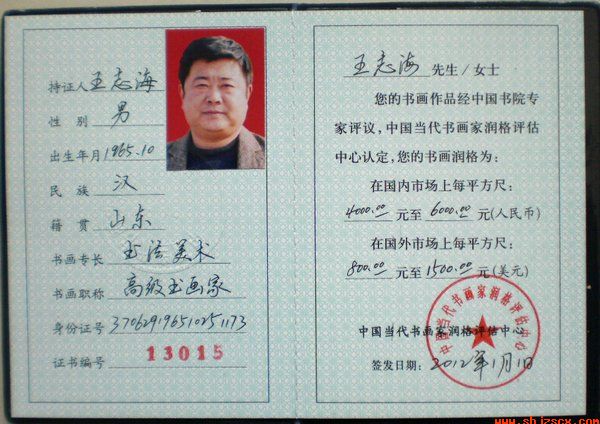 持证人 王志海
性 别 男
出生年月 1965.10
民 族 汉
籍 贯 山东
书画专长 书法美术
书画职称 高级书画家
身份证号 370629196510251173
证书编号 13015
王志海 先生/女士
您的书画作品经中国书院专
家评议，中国当代书画家润格评估
中心认定，您的书画润格为：
在国内市场上每平方尺：
4000.00 元至 6000.00 元(人民币)
在国外市场上每平方尺：
800.00 元至 1500.00 元(美元)
中国当代书画家润格评估中心
中国当代书画家润格评估中心
签发日期：2012年1月1日
www.shjzscx.com